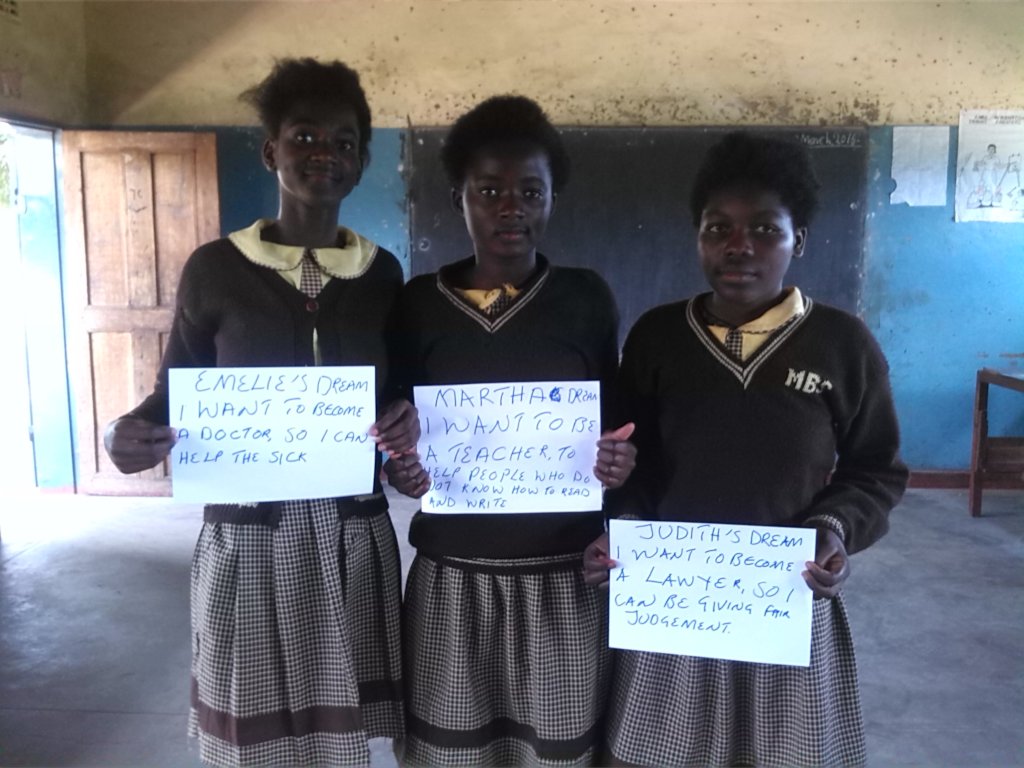 March 2015
EMELIE'S DREAM
I WANT TO BECOME
A DOCTOR, SO I CAN
HELP THE SICK
MARTHA'S DREAM
I WANT TO BE
A TEACHER, TO
HELP PEOPLE WHO DO
NOT KNOW HOW TO READ
AND WRITE
JUDITH'S DREAM
I WANT TO BECOME
A LAWYER, SO I
CAN BE GIVING FAIR
JUDGEMENT.